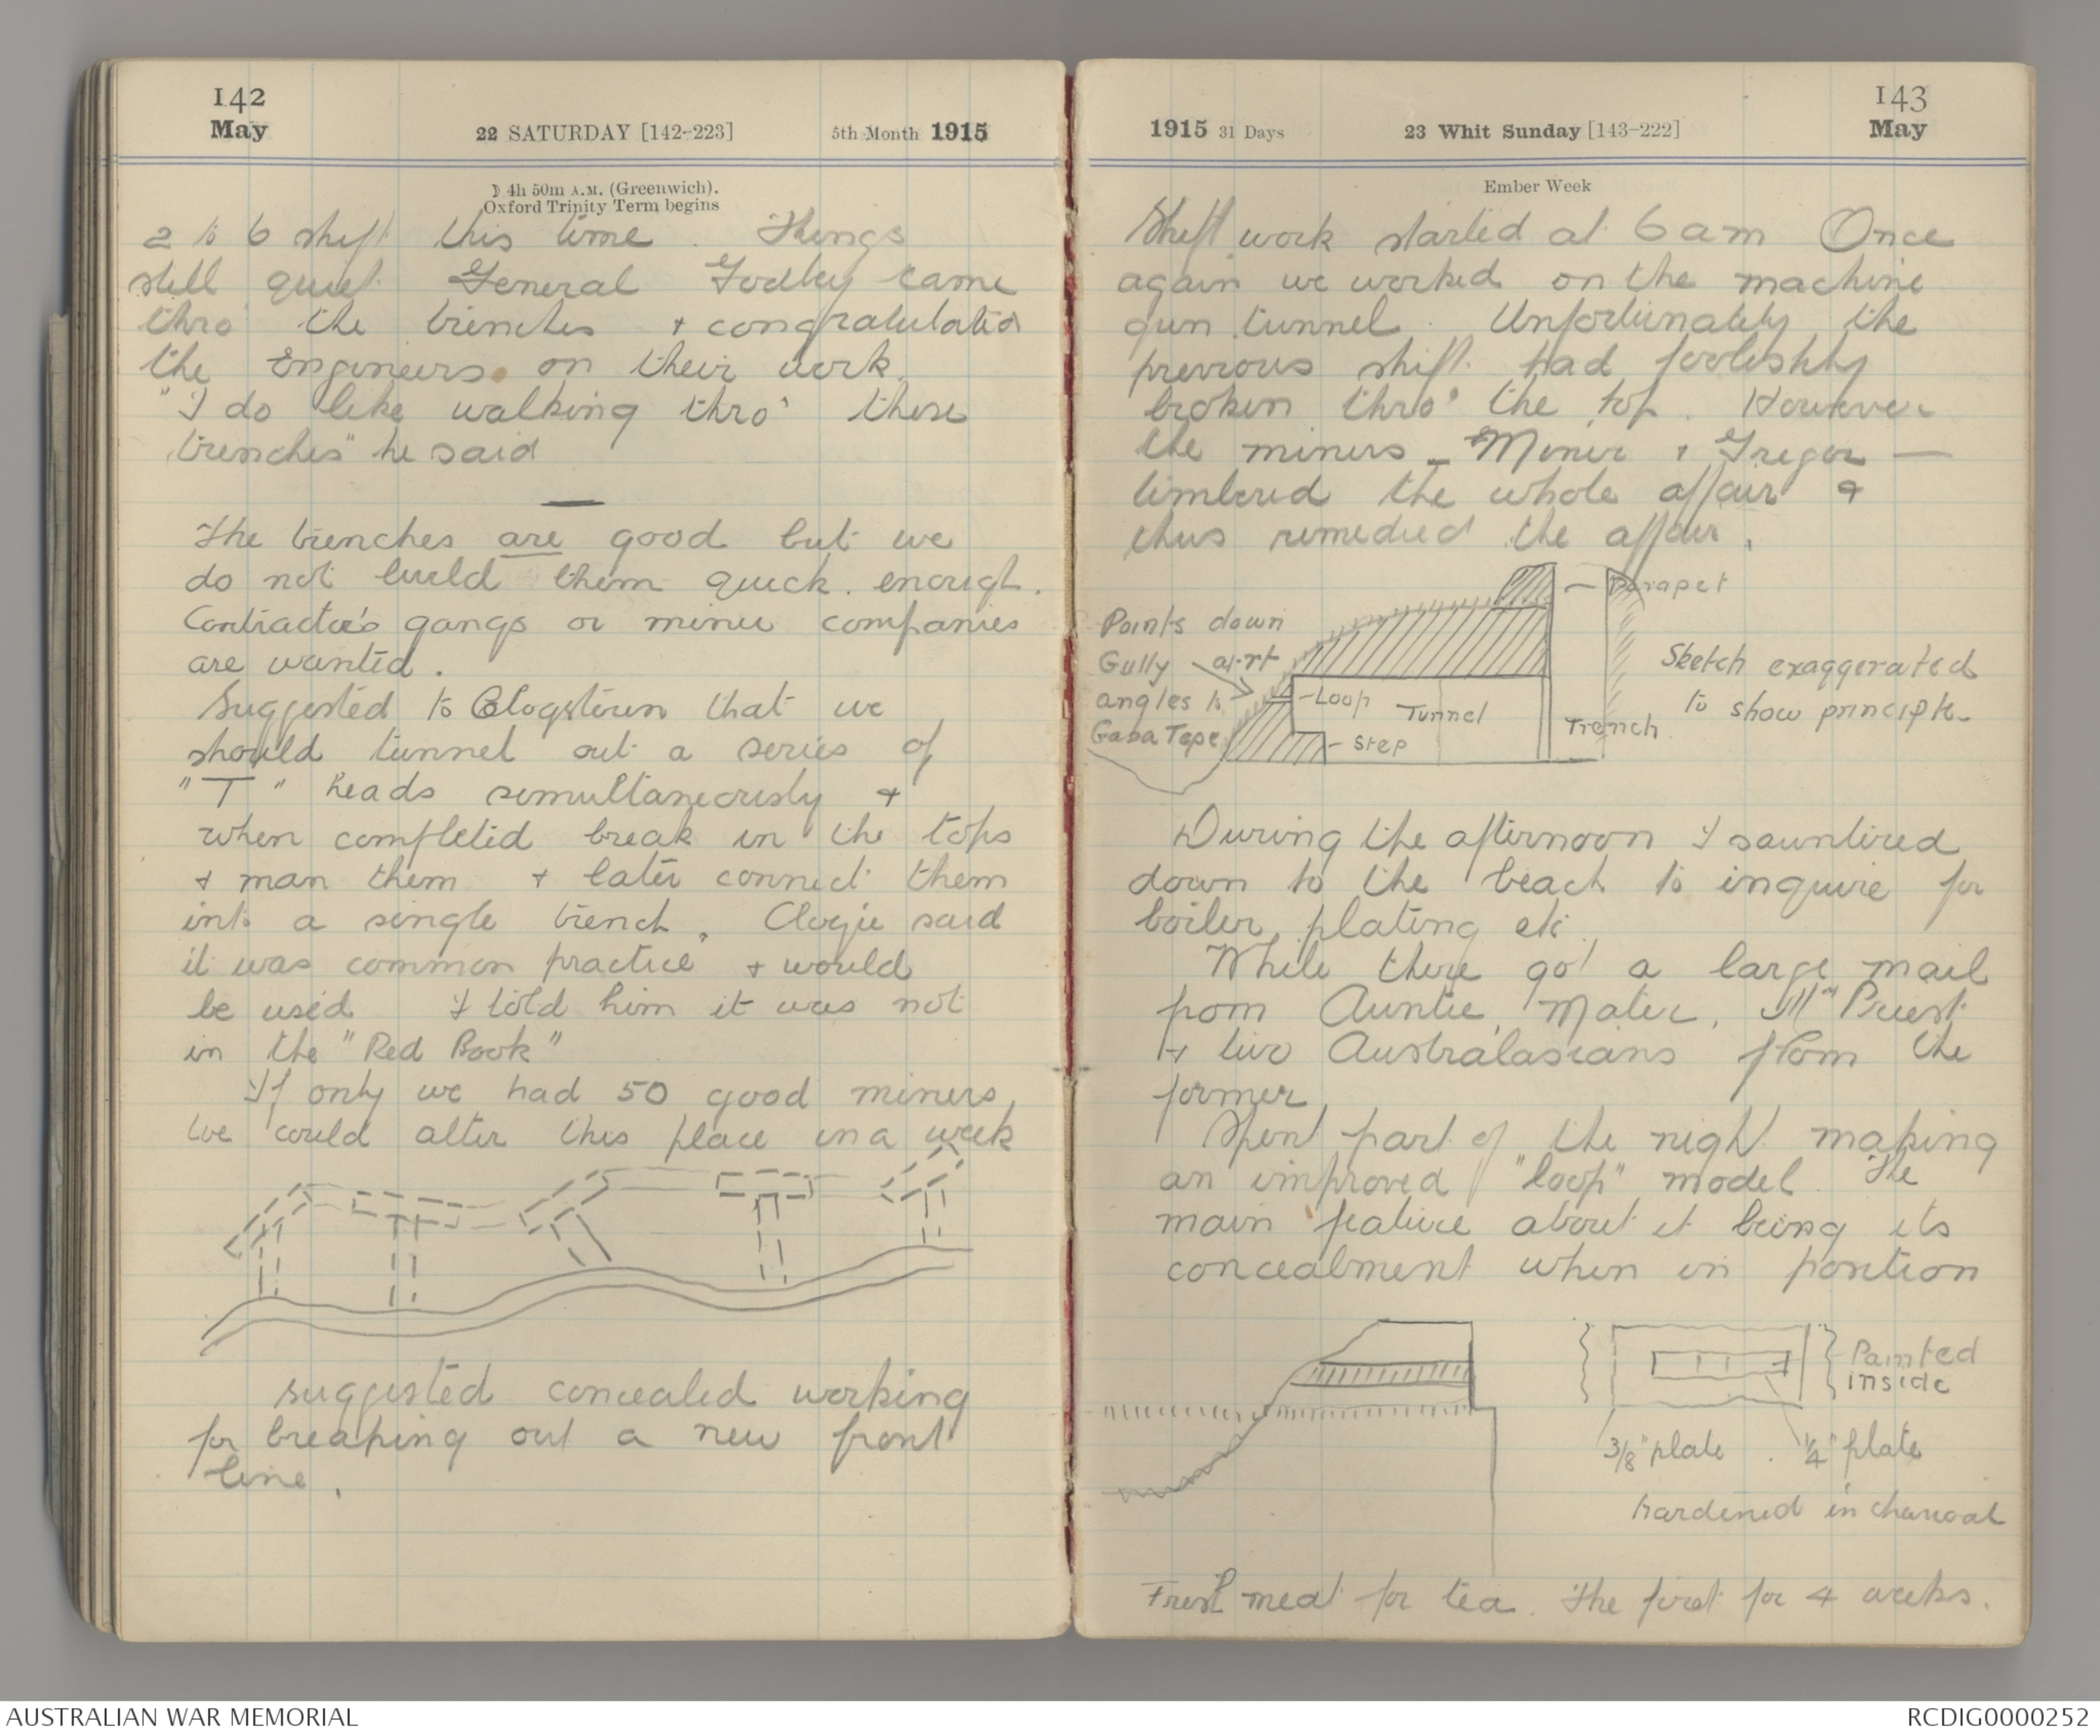 142
May
22 SATURDAY [142-223]
5th Month 1915
☽ 4h 50m A.M. (Greenwich).
Oxford Trinity Term begins
2 to 6 shift this time. Things
still quiet. General Godley came
thro' the trenches + congratulated
the Engineers on their work.
"I do like walking thro' these
trenches" he said
The trenches are good but we
do not build them quick enough.
Contractor's gangs or miner companies
are wanted.
Suggested to Clogstoun that we
should tunnel out a series of
"T" heads simultaneously +
when completed break in the tops
+ man them + later connect them
into a single trench. Clogie said
it was common practice" + would
be used I told him it was not
in the "Red Book"
If only we had 50 good miners
we could alter this place in a week
suggested concealed working
for breaking out a new front
line.
143
May
1915 31 Days
23 Whit Sunday [143-222]
Ember Week
Shift work started at 6 am Once
again we worked on the machine
gun tunnel. Unfortunately the
previous shift had foolishly
broken thro' the top. However
the miners - Miner + Gregor —
timbered the whole affair &
thus remedied the affair.
Parapet
Points down
Gully at rt
angles to
Gaba Tepe
Loop
Tunnel
Step
Trench
Sketch exaggerated
to show principle
During the afternoon I sauntered
down to the beach to inquire for
boiler plating etc.
While there got a large mail
from Auntie, Mater, Priest
+ two Australasians from the
former
Spent part of the night making
an improved "loop" model. The
main feature about it being its
concealment when in position
Painted
inside
3/8" plate
1/4" plate
hardened in charcoal
Fresh meat for tea. The first for 4 weeks.
AUSTRALIAN WAR MEMORIAL
RCDIG0000252